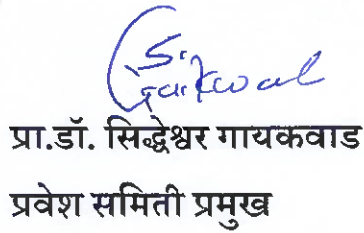 S.
Gaikwad
प्रा.डॉ. सिद्धेश्वर गायकवाड
प्रवेश समिती प्रमुख